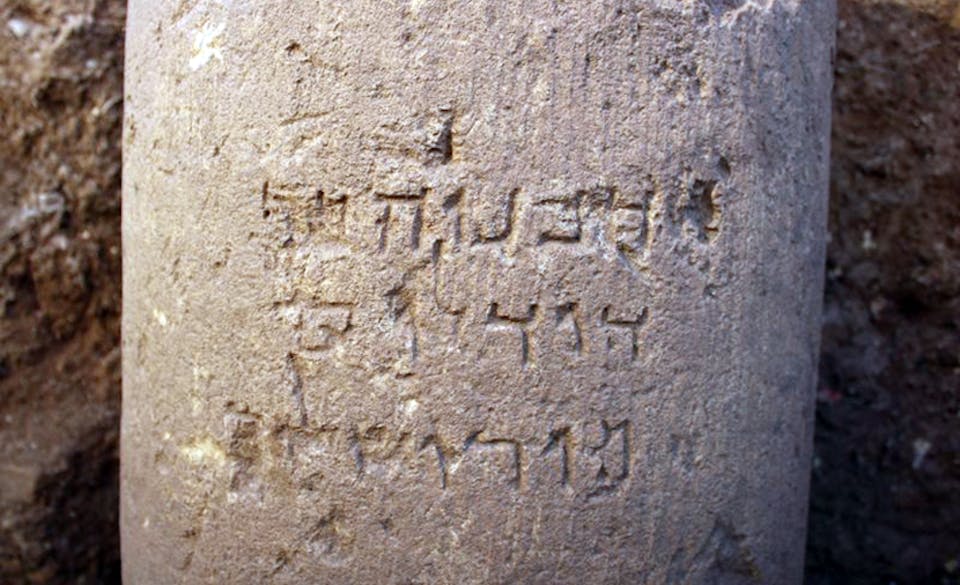 חנניה בר
דודלוס
מירושלים